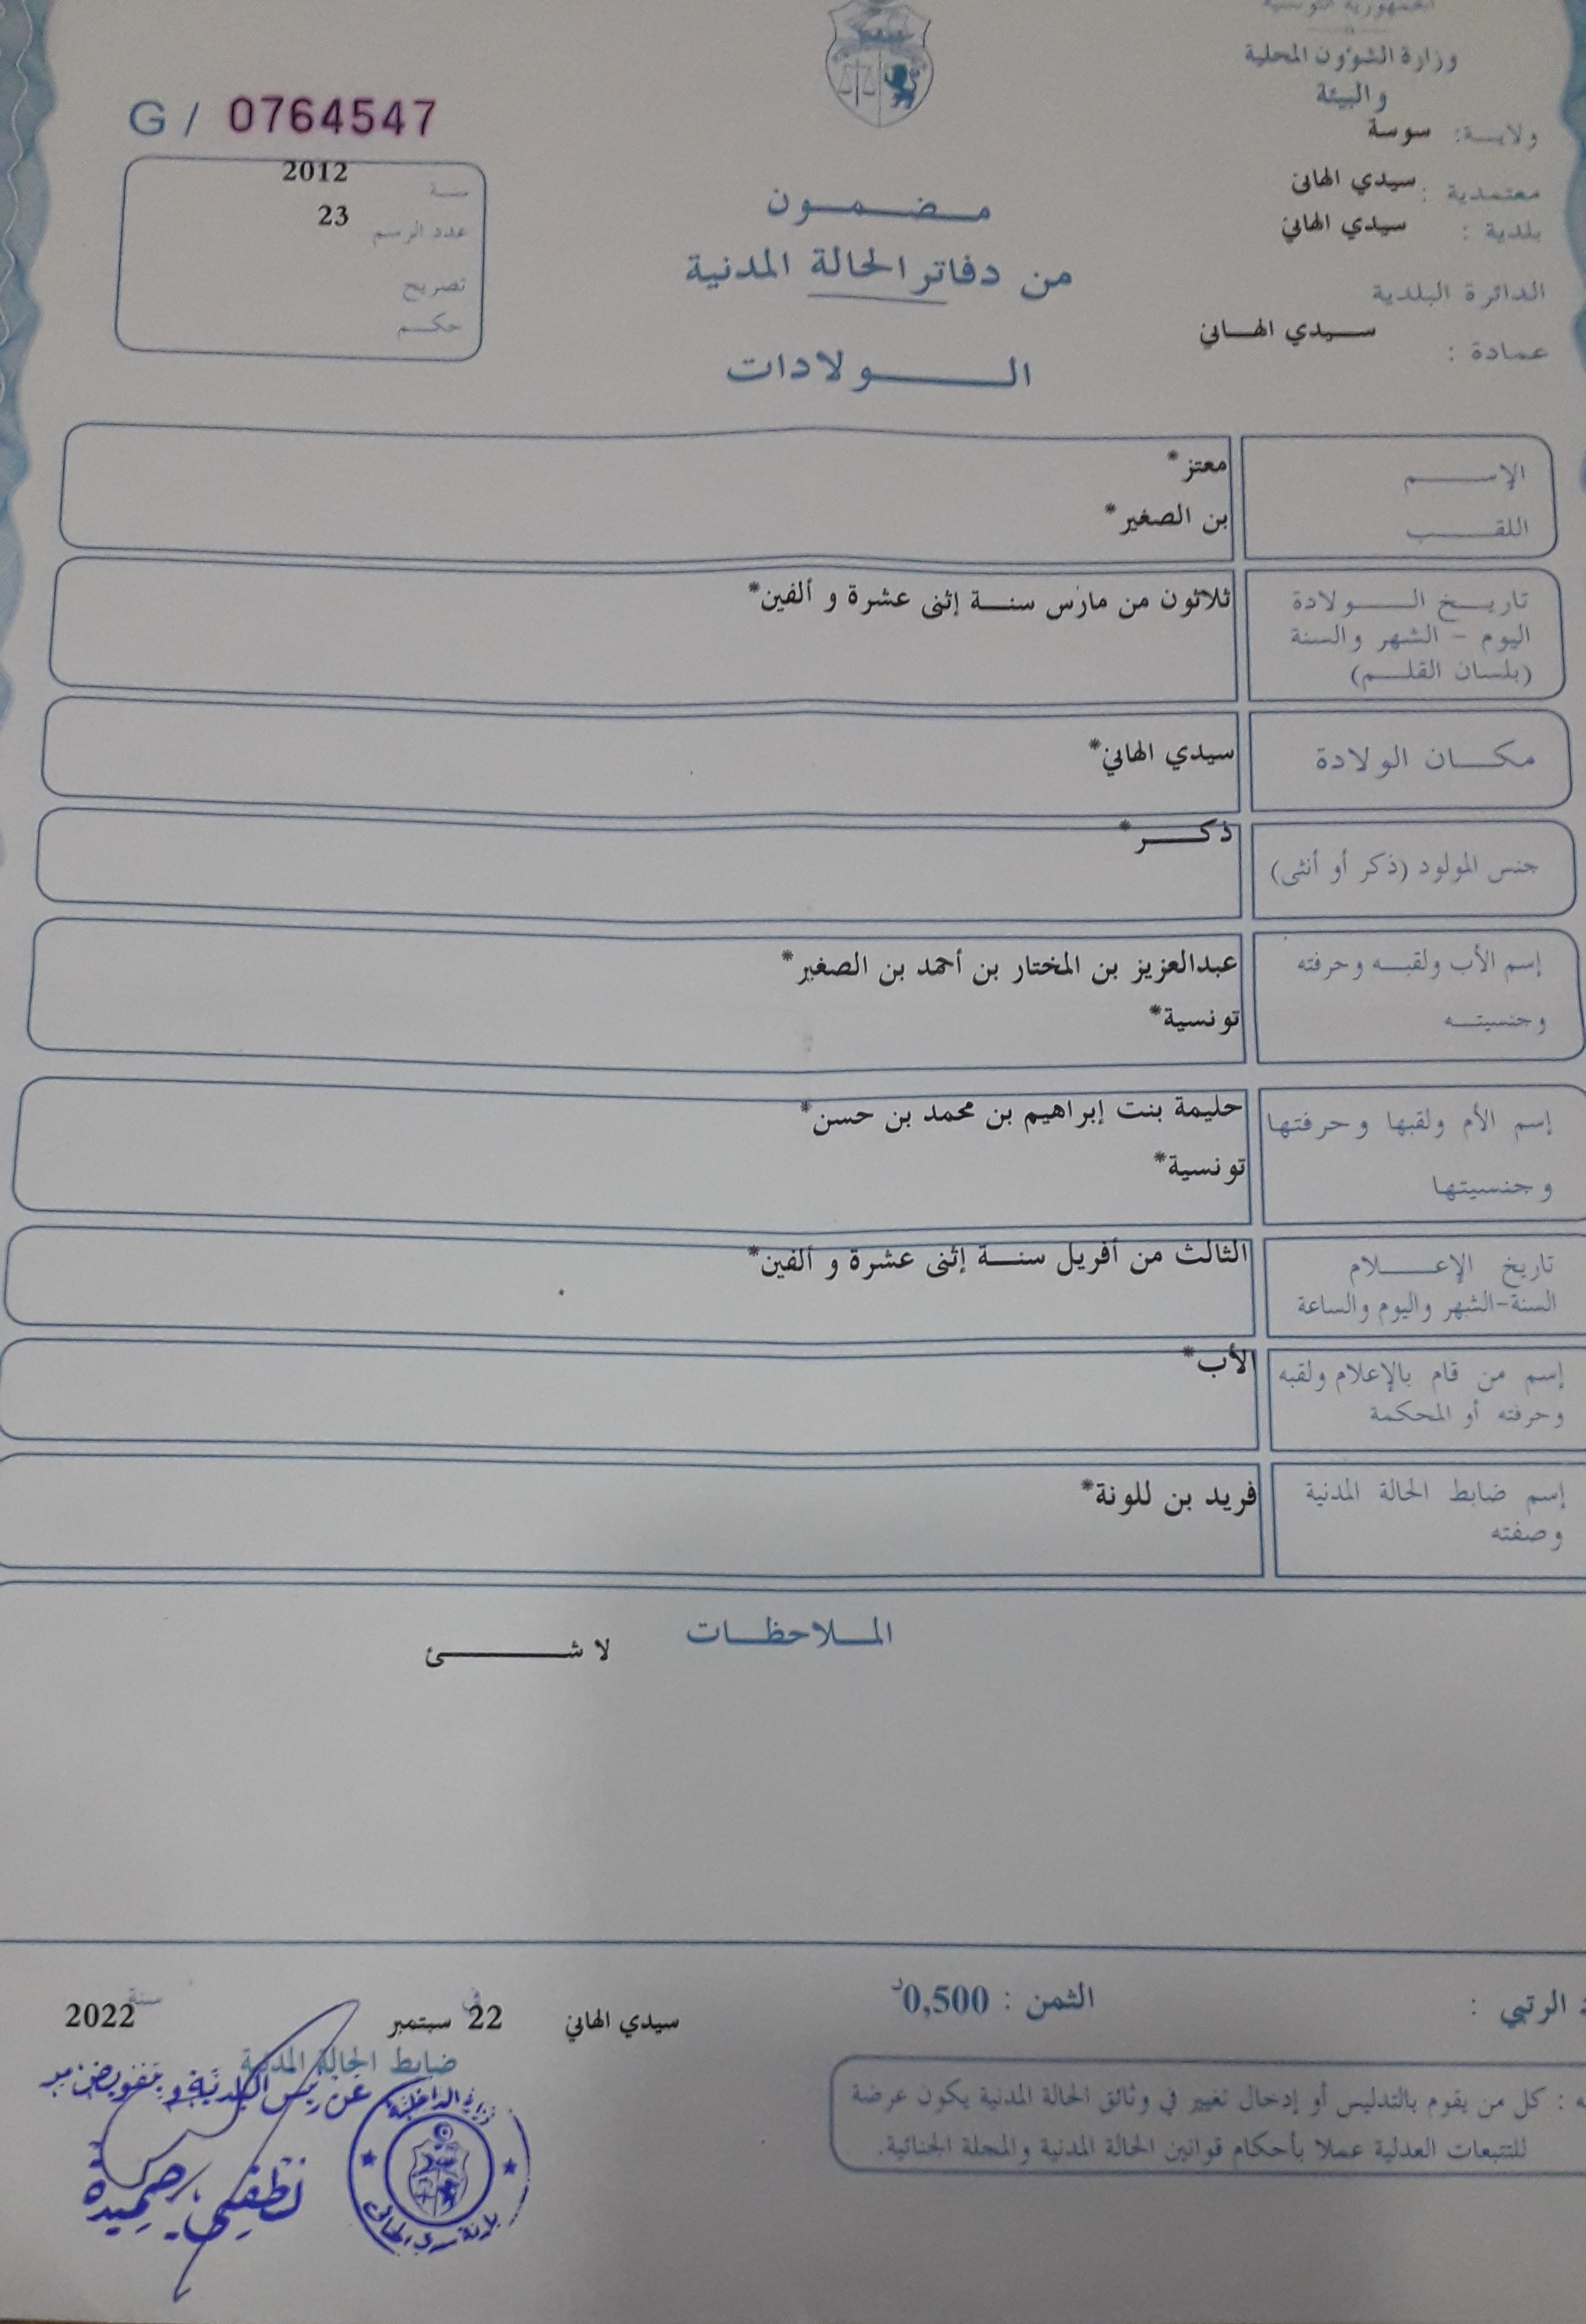 الجمهورية التونسية
وزارة الشؤون المحلية
والبيئة
ولاية: سوسة
معتمدية : سيدي الهاني
بلدية : سيدي الهاني
الدائرة البلدية
عمادة : سيدي الهاني
G / 0764547
سنة 2012
عدد الرسم 23
تصريح
حكم
مضمون
من دفاتر الحالة المدنية
الولادات
الإسم معتز*
اللقب بن الصغير*
تاريخ الولادة ثلاثون من مارس سنة إثنى عشرة و ألفين*
اليوم - الشهر والسنة
(بلسان القلم)
مكان الولادة سيدي الهاني*
جنس المولود (ذكر أو أنثى) ذكر*
إسم الأب ولقبه وحرفته عبدالعزيز بن المختار بن أحمد بن الصغير*
وجنسيته تونسية*
إسم الأم ولقبها وحرفتها حليمة بنت إبراهيم بن محمد بن حسن*
وجنسيتها تونسية*
تاريخ الإعلام الثالث من أفريل سنة إثنى عشرة و ألفين*
السنة-الشهر واليوم والساعة
إسم من قام بالإعلام ولقبه الأب*
وحرفته أو المحكمة
إسم ضابط الحالة المدنية فريد بن للونة*
وصفته
الملاحظات
لا شئ
الرتبي :
الثمن : 0,500د
سيدي الهاني في 22 سبتمبر سنة 2022
ضابط الحالة المدنية
عن رئيس البلدية و بتفويض من
وزارة الداخلية
بلدية سيدي الهاني
: كل من يقوم بالتدليس أو إدخال تغيير في وثائق الحالة المدنية يكون عرضة
للتتبعات العدلية عملا بأحكام قوانين الحالة المدنية والمجلة الجنائية.